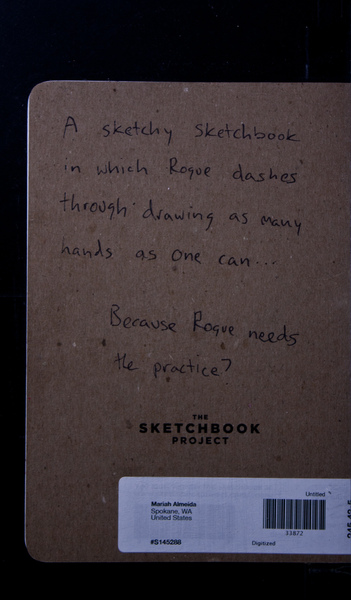 A sketchy sketchbook
in which Rogue dashes
through drawing as many
hands as one can...
Because Rogue needs
the practice?
THE
SKETCHBOOK
PROJECT
Untitled
Mariah Almeida
Spokane, WA
United States
33872
#S145288
Digitized